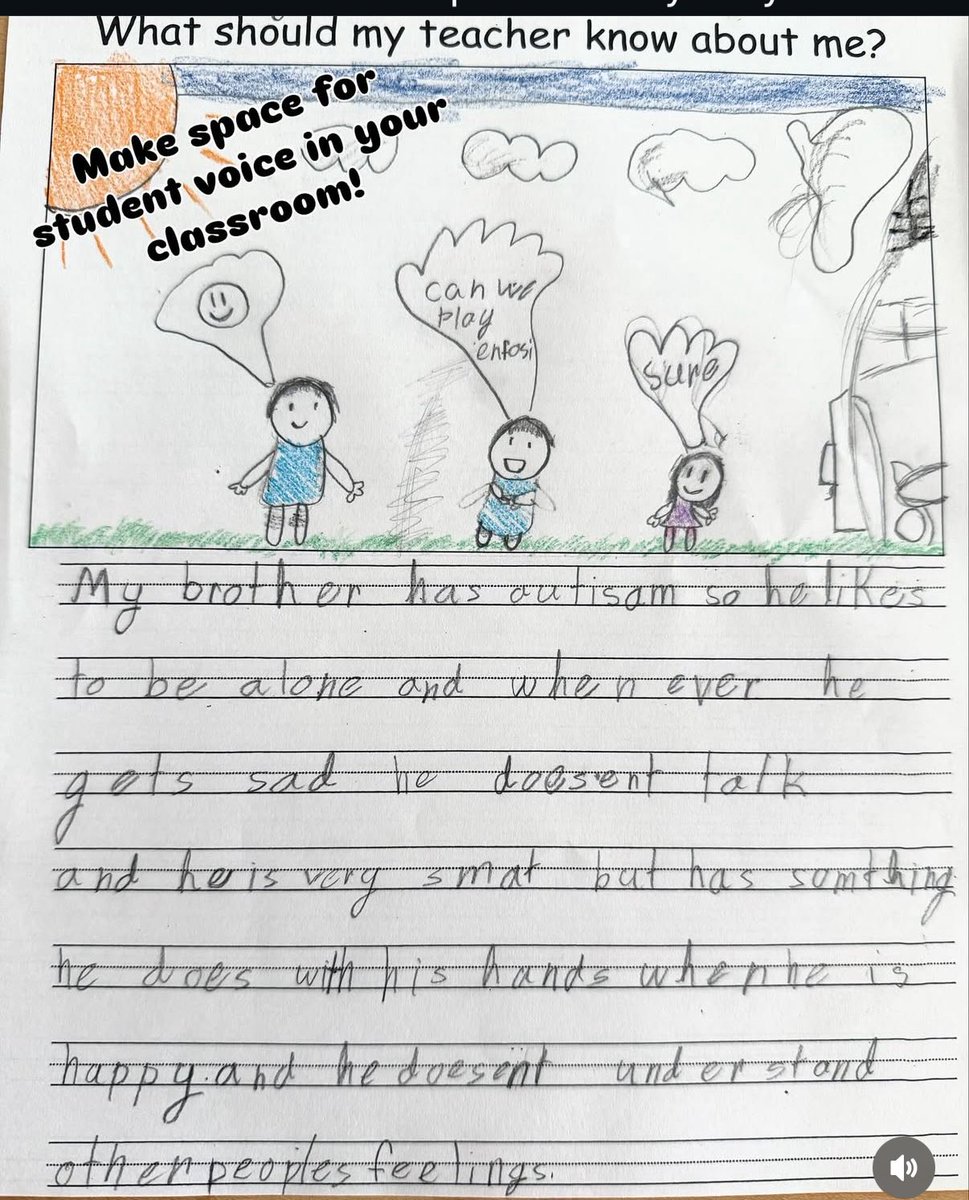 What should my teacher know about me?
Make space for
student voice in your
classroom!
can we
play
enfosi
sure
My brother has autisam so he likes
to be alone and when ever he
gets sad he doesent talk
and he is very smat but has somthing
he does with his hands when he is
happy. and he doesent understand
other peoples feelings.